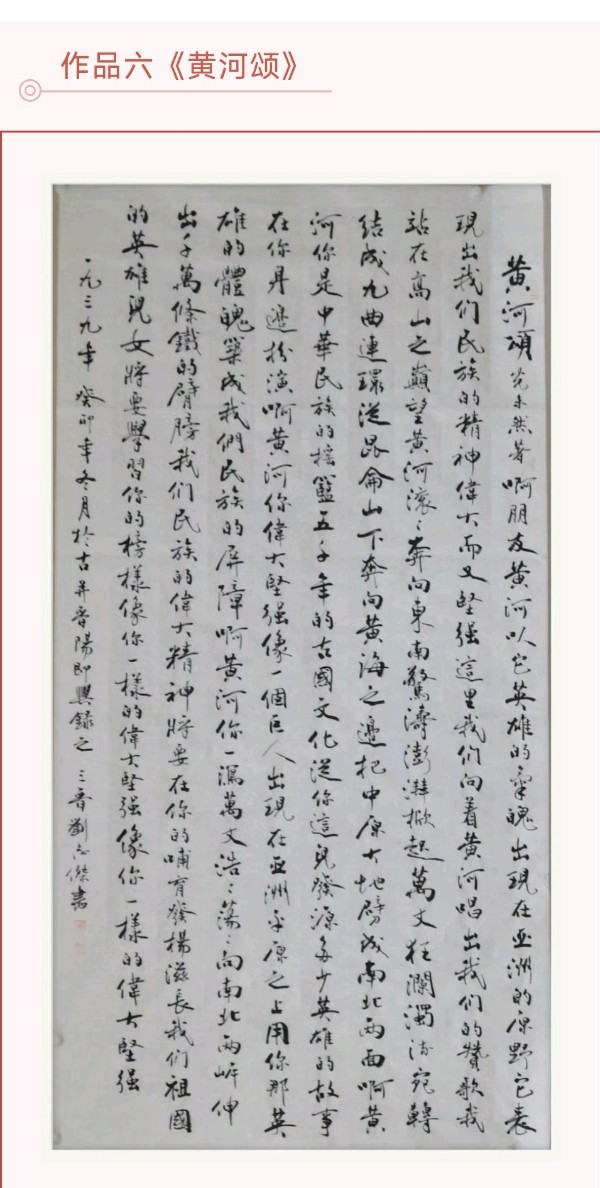 作品六《黄河颂》
黄河頌光未然著啊朋友黄河以它英雄的氣魄出現在亚洲的原野它表
現出我们民族的精神偉大而又堅强這里我们向着黄河唱出我们的贊歌我
站在高山之巔望黄河滚〻奔向東南驚濤澎湃掀起萬丈狂瀾濁流宛轉
結成九曲連環從昆侖山下奔向黄海之邊把中原大地劈成南北两面啊黄
河你是中華民族的摇籃五千年的古國文化從你這兒發源多少英雄的故事
在你身邊扮演啊黄河你偉大堅强像一個巨人出現在亚洲平原之上用你那英
雄的體魄築成我們民族的屏障啊黄河你一瀉萬丈浩〻蕩〻向南北两岸伸
出千萬條鐵的臂膀我们民族的偉大精神將要在你的哺育發楊滋長我们祖國
的英雄兒女將要學習你的榜樣像你一樣的偉大堅强像你一樣的偉大堅强
一九三九年 癸卯年冬月於古并晋陽即興録之 三晋劉志傑書